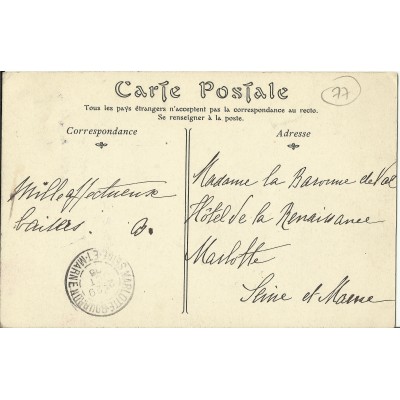 Carte Postale
77
Tous les pays étrangers n'acceptent pas la correspondance au recto.
Se renseigner à la poste.
Correspondance
Adresse
Mille affectueux
baisers.
Madame la Baronne de Val
Hôtel de la Renaissance
Marlotte
Seine et Marne